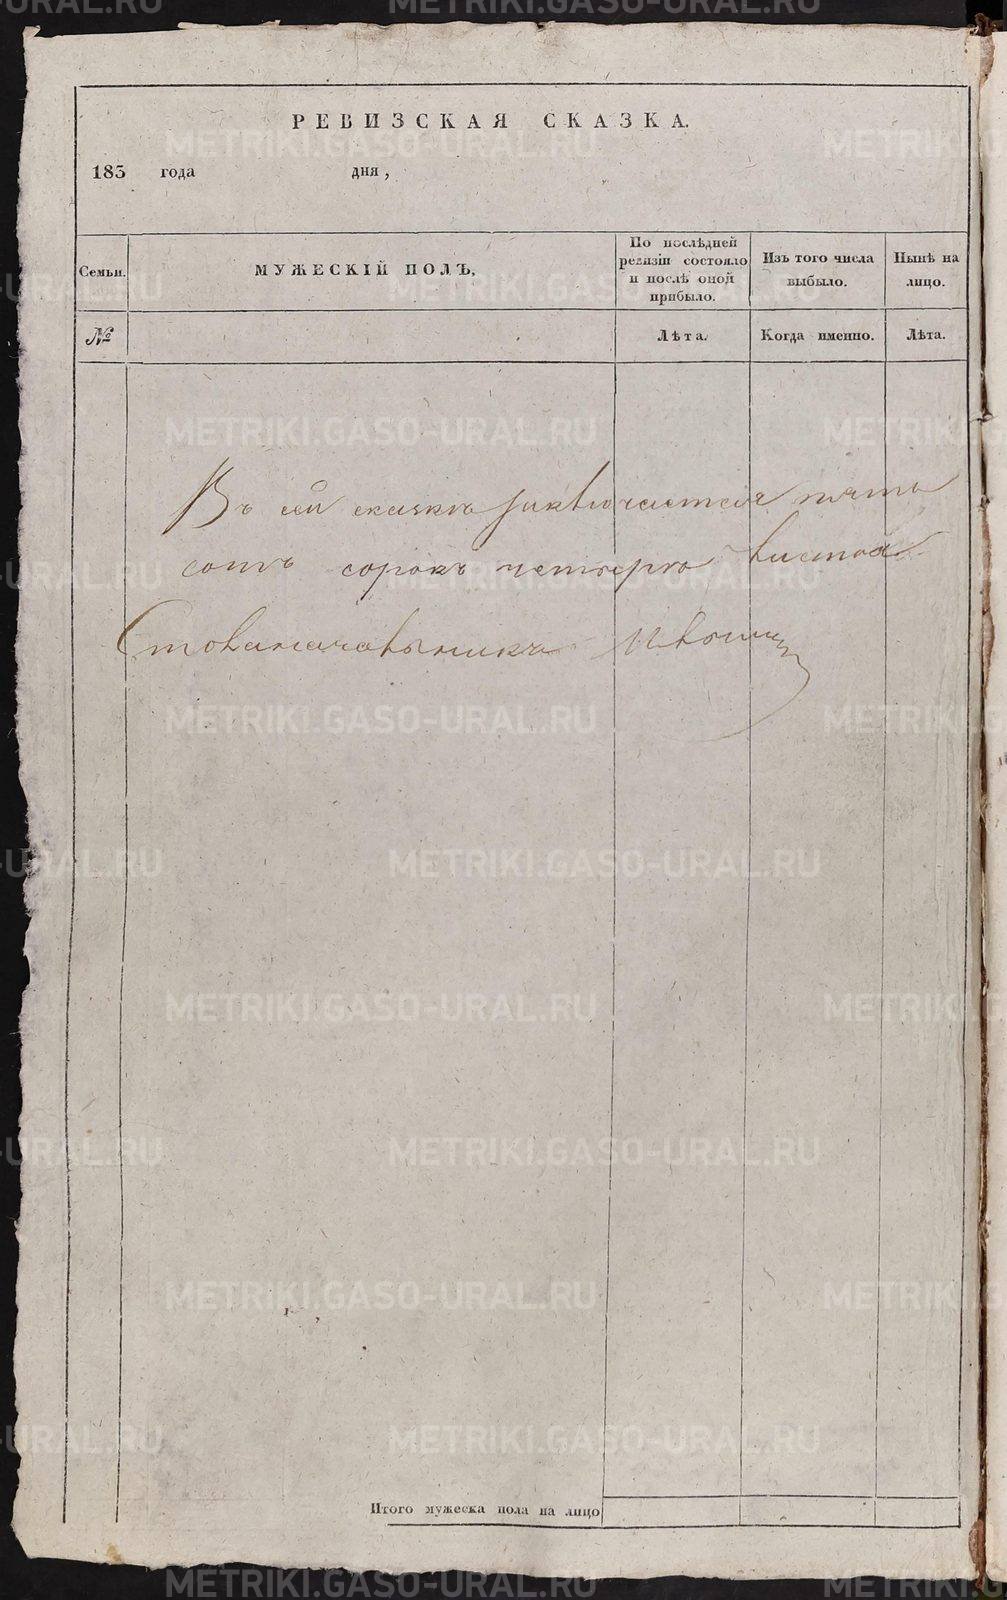 РЕВИЗСКАЯ СКАЗКА.
185 года дня,
Семьи. МУЖЕСКІЙ ПОЛЪ,
По послѣдней
ревизіи состояло
и послѣ оной
прибыло.
Изъ того числа
выбыло.
Нынѣ на
лицо.
№ Лѣта. Когда именно. Лѣта.
Въ сей сказкѣ заключается пять
сотъ сорокъ четыре листа
Столоначальникъ
Итого мужеска пола на лицо
METRIKI.GASO-URAL.RU